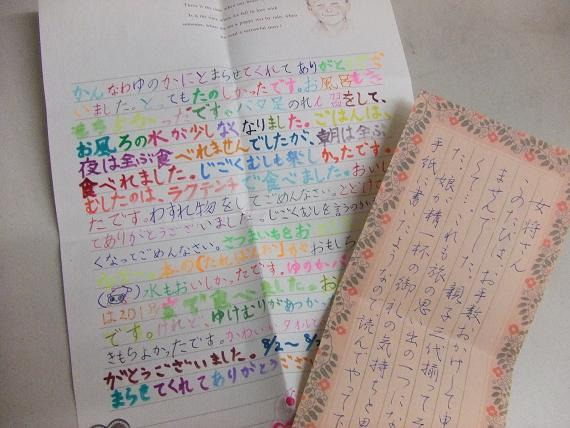 There is the time when our
It is the time when we fall in love with
かんなわゆのかにとまらせてくれてありがとうござ
いました。とってもたのしかったです。お風呂もき
もちよかったです。バタ足のれん習をして、
お風ろの水が少しなくなりました。ごはんは、
夜は全ぶ食べれませんでしたが、朝は全ぶ
食べれました。じごくむしも楽しかったです。
むしたのは、ラクテンチで食べました。おいし
たです。わすれ物をしてごめんなさい。とどけ
てありがとうございました。じごくむしを言うのが
くなってごめんなさい。さつまいもをお
本の「たれぱんだ」がおもしろ
水もおいしかったです。ゆのか
は201号室で食べました。お
です。けれど、ゆけむりがあつかっ
きもちよかったです。かわいいタオル
がとうございました。8/2〜8/
まらせてくれてありがとうござ
女将さん
このたびは、お手数おかけして申
ませんでした。親子三代揃って
た。これも旅の思い出の一つにな
娘が精一杯の御礼の気持ちを
手紙に書いたようなので読んでやって下